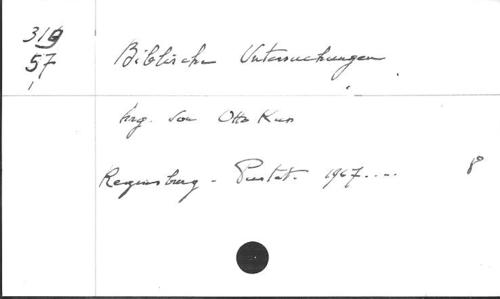 319
57
Biblische Untersuchungen
hrg. von Otto Kuss
Regensburg - Pustet. 1967....
8°